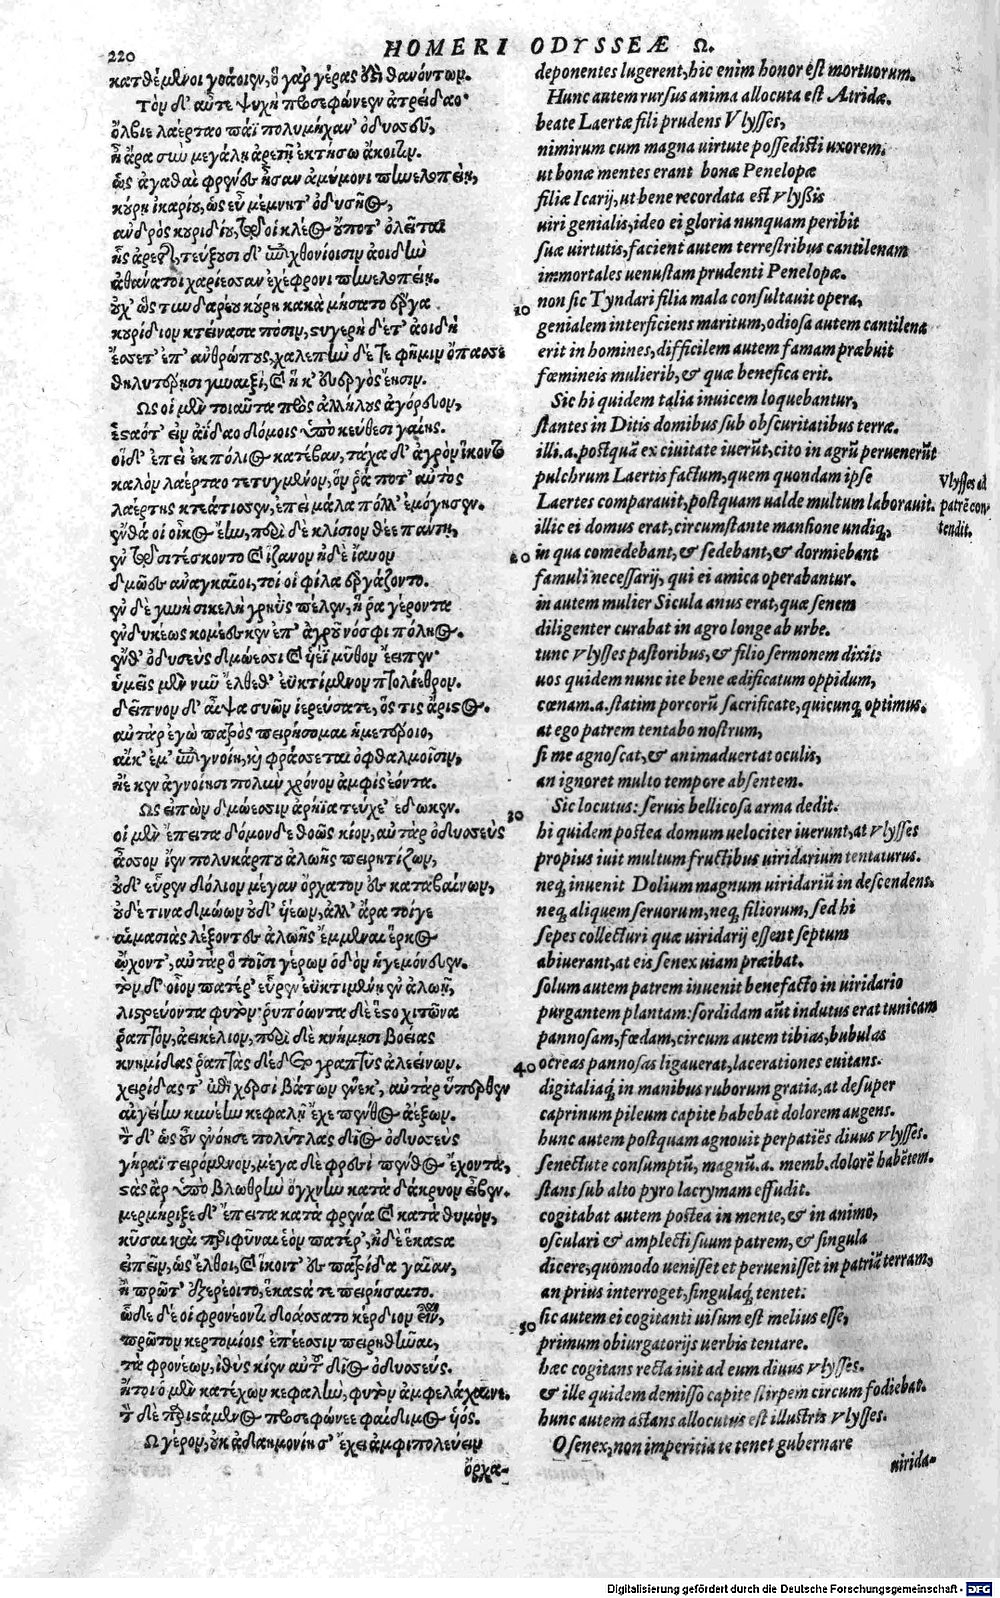 220
HOMERI ODYSSEÆ Ω.
κατθέμενοι γοάοιεν, ὃ γὰρ γέρας ἐστὶ θανόντων.
Τὸν δ' αὖτε ψυχὴ προσεφώνεεν ἀτρείδαο·
ὄλβιε λαέρταο πάϊ πολυμήχαν' ὀδυσσεῦ,
ἦ ἄρα σὺν μεγάλῃ ἀρετῇ ἐκτήσω ἄκοιτιν.
ὡς ἀγαθαὶ φρένες ἦσαν ἀμύμονι πηνελοπείῃ,
κούρῃ ἰκαρίου, ὡς εὖ μέμνητ' ὀδυσῆος,
ἀνδρὸς κουριδίου, τῷ οἱ κλέος οὔποτ' ὀλεῖται
ἧς ἀρετῆς, τεύξουσι δ' ἐπιχθονίοισιν ἀοιδὴν
ἀθάνατοι χαρίεσσαν ἐχέφρονι πηνελοπείῃ.
οὐχ' ὡς τυνδαρέου κούρη κακὰ μήσατο ἔργα
κουρίδιον κτείνασα πόσιν, στυγερὴ δέ τ' ἀοιδὴ
ἔσσετ' ἐπ' ἀνθρώπους, χαλεπὴν δέ τε φῆμιν ὀπάσσει
θηλυτέρῃσι γυναιξὶ, καὶ ἥ κ' εὐεργὸς ἔησιν.
Ως οἱ μὲν τοιαῦτα πρὸς ἀλλήλους ἀγόρευον,
ἑσταότ' εἰν ἀΐδαο δόμοις ὑπὸ κεύθεσι γαίης.
οἱ δ' ἐπεὶ ἐκ πόλιος κατέβαν, τάχα δ' ἀγρὸν ἵκοντο
καλὸν λαέρταο τετυγμένον, ὅν ῥά ποτ' αὐτὸς
λαέρτης κτεάτισσεν, ἐπεὶ μάλα πόλλ' ἐμόγησεν.
ἔνθά οἱ οἶκος ἔην, περὶ δὲ κλίσιον θέε πάντῃ,
ἐν τῷ σιτέσκοντο καὶ ἵζανον ἠδὲ ἴαυον
δμῶες ἀναγκαῖοι, τοί οἱ φίλα ἐργάζοντο.
ἐν δὲ γυνὴ σικελὴ γρηῢς πέλεν, ἥ ῥα γέροντα
ἐνδυκέως κομέεσκεν ἐπ' ἀγροῦ νόσφι πόληος.
ἔνθ' ὀδυσεὺς δμώεσσι καὶ υἱέϊ μῦθον ἔειπεν·
ὑμεῖς μὲν νῦν ἔλθετ' ἐϋκτίμενον πτολίεθρον.
δεῖπνον δ' αἶψα συῶν ἱερεύσατε, ὅς τις ἄριστος.
αὐτὰρ ἐγὼ πατρὸς πειρήσομαι ἡμετέροιο,
αἴ κ' ἔμ' ἐπιγνοίη, καὶ φράσσεται ὀφθαλμοῖσιν,
ἦέ κεν ἀγνοίησι πολὺν χρόνον ἀμφὶς ἐόντα.
Ως εἰπὼν δμώεσσιν ἀρήϊα τεύχε' ἔδωκεν.
οἱ μὲν ἔπειτα δόμονδε θοῶς κίον, αὐτὰρ ὀδυσσεὺς
ἆσσον ἴεν πολυκάρπου ἀλωῆς πειρητίζων,
οὐδ' εὗρεν δόλιον μέγαν ὄρχατον ἐσκαταβαίνων,
οὐδέ τινα δμώων οὐδ' υἱέων, ἀλλ' ἄρα τοίγε
αἱμασιὰς λέξοντες ἀλωῆς ἔμμεναι ἕρκος
ᾤχοντ', αὐτὰρ ὁ τοῖσι γέρων ὁδὸν ἡγεμόνευεν.
τὸν δ' οἶον πατέρ' εὗρεν ἐϋκτιμένῃ ἐν ἀλωῇ,
λιστρεύοντα φυτόν· ῥυπόωντα δὲ ἕστο χιτῶνα
ῥαπτὸν, ἀεικέλιον, περὶ δὲ κνήμῃσι βοείας
κνημῖδας ῥαπτὰς δέδετο γραπτῦς ἀλεείνων.
χειρῖδάς τ' ἐπὶ χερσὶ βάτων ἕνεκ', αὐτὰρ ὕπερθεν
αἰγείην κυνέην κεφαλῇ ἔχε πένθος ἀέξων.
τὸν δ' ὡς οὖν ἐνόησε πολύτλας δῖος ὀδυσσεὺς
γήραϊ τειρόμενον, μέγα δὲ φρεσὶ πένθος ἔχοντα,
στὰς ἂρ ὑπὸ βλωθρὴν ὄγχνην κατὰ δάκρυον εἶβεν.
μερμήριξε δ' ἔπειτα κατὰ φρένα καὶ κατὰ θυμὸν,
κύσσαι καὶ περιφῦναι ἑὸν πατέρ', ἠδὲ ἕκαστα
εἰπεῖν, ὡς ἔλθοι, καὶ ἵκοιτ' ἐς πατρίδα γαῖαν,
ἦ πρῶτ' ἐξερέοιτο, ἕκαστά τε πειρήσαιτο.
ὧδε δέ οἱ φρονέοντι δοάσσατο κέρδιον εἶναι,
πρῶτον κερτομίοις ἐπέεσσιν πειρηθῆναι,
τὰ φρονέων, ἰθὺς κίεν αὐτοῦ δῖος ὀδυσσεύς.
ἤτοι ὁ μὲν κατέχων κεφαλὴν, φυτὸν ἀμφελάχαινε.
τὸν δὲ παριστάμενος προσεφώνεε φαίδιμος υἱός.
Ω γέρον, οὐκ ἀδαημονίη σ' ἔχει ἀμφιπολεύειν
ὄρχα-
deponentes lugerent, hic enim honor est mortuorum.
Hunc autem rursus anima allocuta est Atridæ.
beate Laertæ fili prudens Vlysses,
nimirum cum magna uirtute possedisti uxorem.
ut bonæ mentes erant bonæ Penelopæ
filiæ Icarij, ut bene recordata est Vlyssis
uiri genialis, ideo ei gloria nunquam peribit
suæ uirtutis, facient autem terrestribus cantilenam
immortales uenustam prudenti Penelopæ.
10 non sic Tyndari filia mala consultauit opera,
genialem interficiens maritum, odiosa autem cantilena
erit in homines, difficilem autem famam præbuit
fœmineis mulierib, & quæ benefica erit.
Sic hi quidem talia inuicem loquebantur,
stantes in Ditis domibus sub obscuritatibus terræ.
illi .a. postquã ex ciuitate iuerũt, cito in agrũ peruenerũt
pulchrum Laertis factum, quem quondam ipse
Laertes comparauit, postquam ualde multum laborauit.
Vlysses ad
patrẽ con
tendit.
illic ei domus erat, circumstante mansione undiq;,
20 in qua comedebant, & sedebant, & dormiebant
famuli necessarij, qui ei amica operabantur.
in autem mulier Sicula anus erat, quæ senem
diligenter curabat in agro longe ab urbe.
tunc Vlysses pastoribus, & filio sermonem dixit:
uos quidem nunc ite bene ædificatum oppidum,
cœnam .a. statim porcorũ sacrificate, quicunq; optimus.
at ego patrem tentabo nostrum,
si me agnoscat, & animaduertat oculis,
an ignoret multo tempore absentem.
Sic locutus: seruis bellicosa arma dedit.
30 hi quidem postea domum uelociter iuerunt, at Vlysses
propius iuit multum fructibus uiridarium tentaturus.
neq; inuenit Dolium magnum uiridariũ in descendens.
neq; aliquem seruorum, neq; filiorum, sed hi
sepes collecturi quæ uiridarij essent septum
abiuerant, at eis senex uiam præibat.
solum autem patrem inuenit benefacto in uiridario
purgantem plantam: sordidam aũt indutus erat tunicam
pannosam, fœdam, circum autem tibias, bubulas
40 ocreas pannosas ligauerat, lacerationes euitans.
digitaliaq; in manibus ruborum gratia, at desuper
caprinum pileum capite habebat dolorem augens.
hunc autem postquam agnouit perpatiẽs diuus Vlysses.
senectute consumptũ, magnũ .a. memb. dolorẽ habẽtem.
stans sub alto pyro lacrymam effudit.
cogitabat autem postea in mente, & in animo,
osculari & amplecti suum patrem, & singula
dicere, quomodo uenisset et peruenisset in patriã terram,
an prius interroget, singulaq; tentet.
50 sic autem ei cogitanti uisum est melius esse,
primum obiurgatorijs uerbis tentare.
hæc cogitans recta iuit ad eum diuus Vlysses.
& ille quidem demisso capite stirpem circum fodiebat.
hunc autem astans allocutus est illustris Vlysses.
O senex, non imperitia te tenet gubernare
uirida-
Digitalisierung gefördert durch die Deutsche Forschungsgemeinschaft - DFG